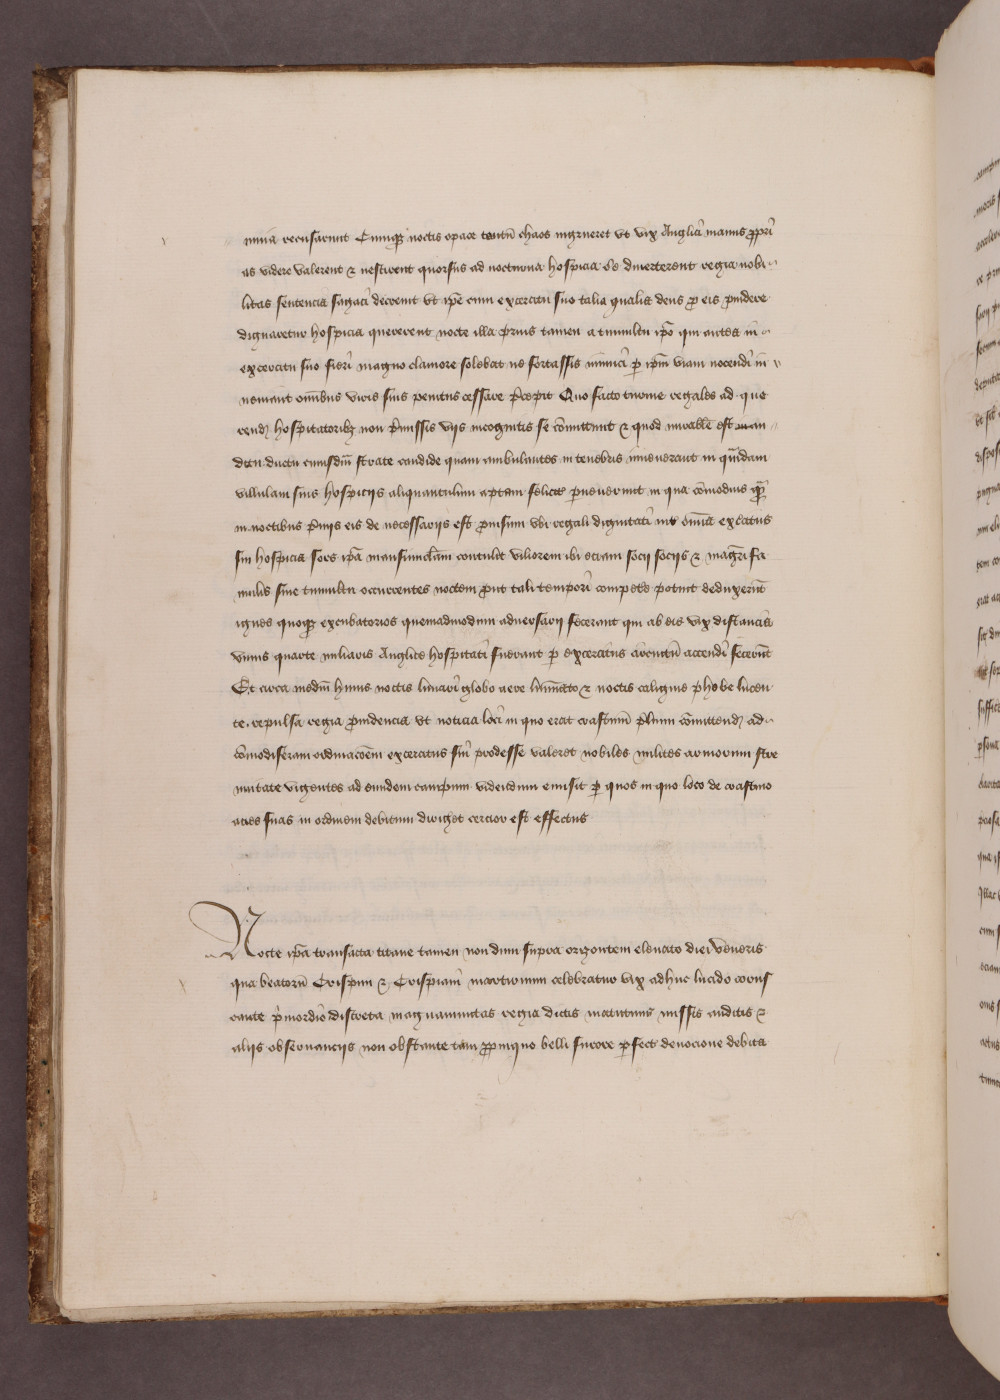 nima recusarunt Cumqꝫ noctis opace tantū chaos nigrueret vt vix Anglici manus ꝓpri
as videre valerent ⁊ nescirent quorsus ad nocturna hospicia se diuerterent regia nobi
litas sentencia sagaci decreuit vt ip̄e cum excercitu suo talia qualia deus ꝓ eis ꝓuidere
dignaretur hospicia quererent nocte illa prius tamen a tumultu ip̄o qui antea in
excercitu suo fieri magno clamore solebat ne fortassis inimici ꝑ ip̄m viam nocendi in
uenirent om̄ibus viris suis penitus cessare p̄cepit Quo facto turme regales ad que
rend hospitatoribꝫ non p̄missis viis incognitis se cōmittunt ⁊ quod mirabile est
ductu cuiusdm̄ strate candide quam ambulantes in tenebris inuenerant in quādam
villulam suis hospiciis aliquantulum aptam feliciter ꝑuenerunt in qua cōmodius
in noctibus p̄uiis eis de necessariis est ꝓuisum vbi regali dignitati int̄ om̄ia excercitus
sui hospicia sors ip̄a mansiunculam contulit viliorem ibi eciam socii sociis ⁊ magr̄i fa
mulis sine tumultu occurrentes noctem ꝓut tali tempori competere potuit deduxerūt
ignes quoqꝫ excubatorios quemadmodum aduersarii fecerant qui ab eis vix distancia
vnius quarte miliaris Anglice hospitati fuerant ꝑ excercitus circuitū accendi fecerūt
Et circa mediū huius noctis lunari globo aere illuminato ⁊ noctis caligine phebe lucen
te repulsa regia ꝓuidencia vt noticia loci in quo erat crastinū p̄lium cōmittend ad
cōmodiferam ordinacōem excercitus sui prodesse valeret nobiles milites armorum stre
nuitate vigentes ad eundem campum videndum emisit ꝑ quos in quo loco de crastino
acies suas in ordinem debitum dirigeret cercior est effectus
Nocte ip̄a transacta titane tamen non dum supra orizontem eleuato diei veneris
qua beatorū Crispini ⁊ Crispiani martirum celebratur vix adhuc lucido corus
cante p̄mordio discreta magnanimitas regia dictis matutinis missis auditis ⁊
aliis obseruanciis non obstante tam ꝓpinquo belli furore ꝑfect deuocione debita